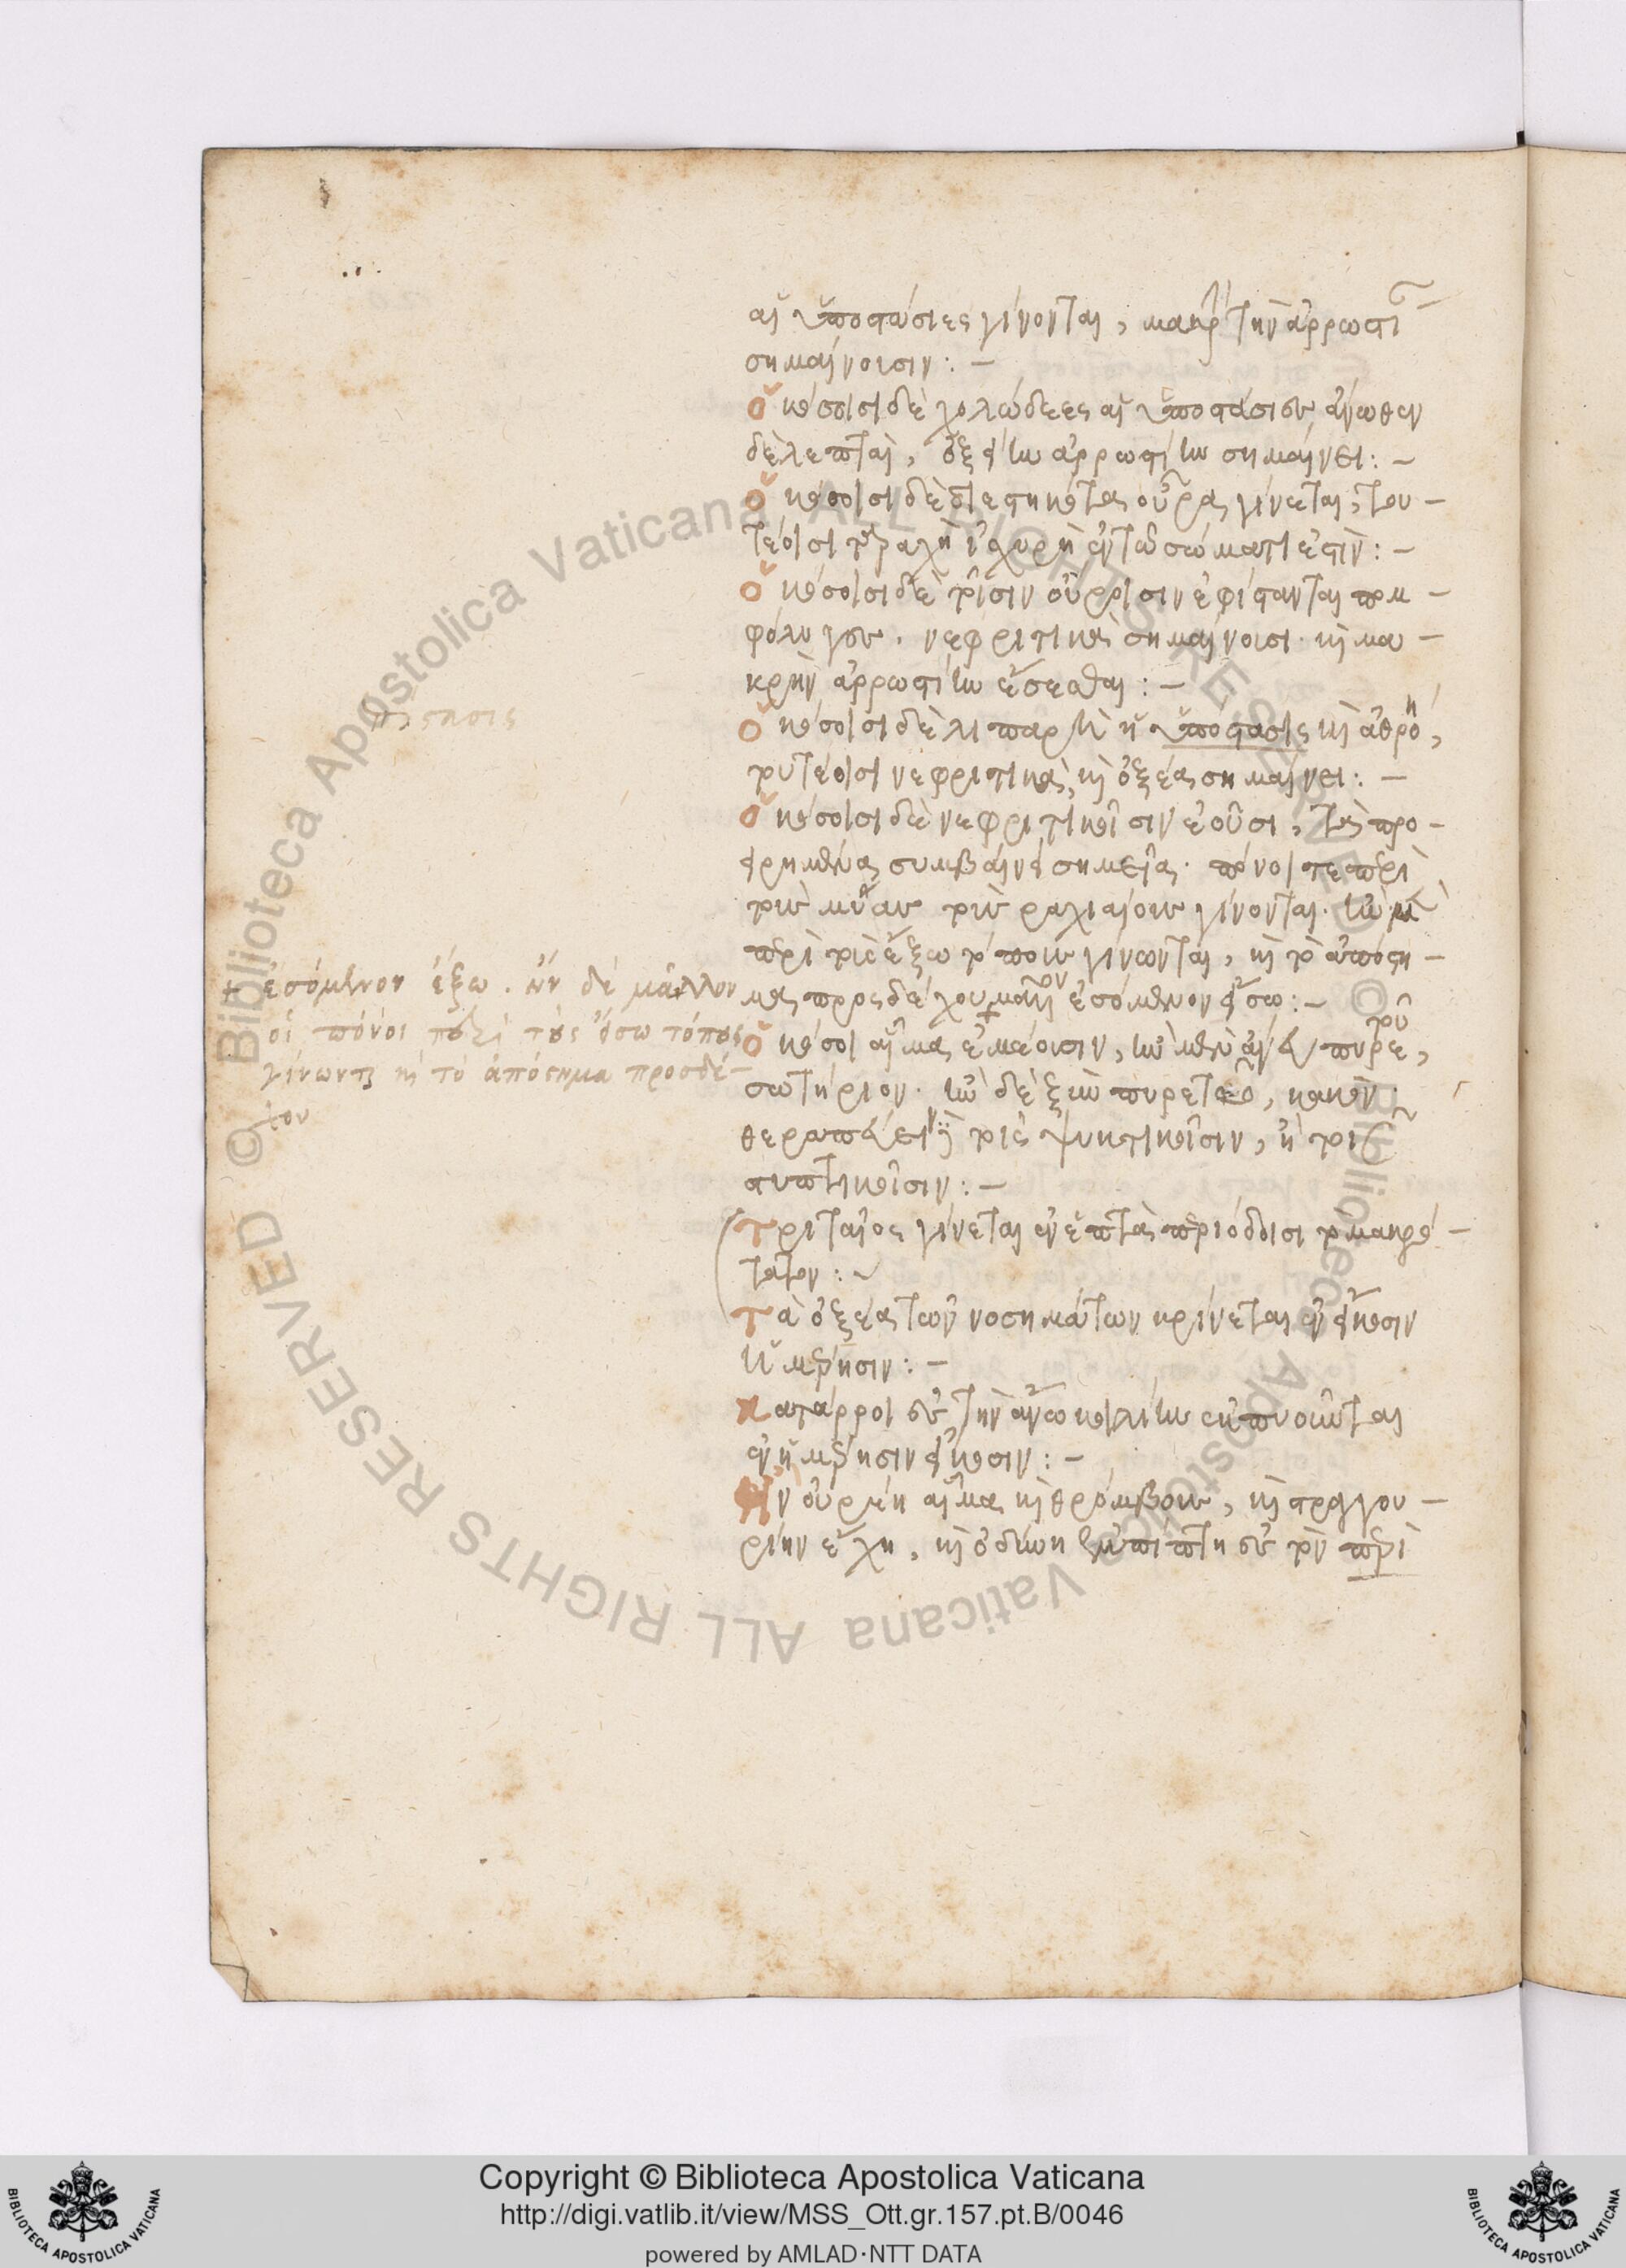 αἱ ὑποστάσιες γίνονται, μακρὴν τὴν ἀρρωστίην
σημαίνουσιν: –
Ὁκόσοισι δὲ χολώδεες αἱ ὑποστάσιες ἄνωθεν
δὲ λεπταὶ, ὀξείην ἀρρωστίην σημαίνει: –
Ὁκόσοισι δὲ διεστηκότα οὖρα γίνεται, του–
τέοισι ταραχὴ ἰσχυρὴ ἐν τῷ σώματι ἐστίν: –
Ὁκόσοισι δὲ τοῖσιν οὔροισιν ἐφίστανται πομ–
φόλυγες. νεφριτικὰ σημαίνουσι. καὶ μα–
κρὴν ἀρρωστίην ἔσεσθαι: –
Ὁκόσοισι δὲ λιπαρὴ ἡ ὑπόστασις καὶ ἀθρόη,
τουτέοισι νεφριτικὰ, καὶ ὀξέα σημαίνει: –
Ὁκόσοισι δὲ νεφριτικοῖσιν ἐοῦσι, τὰ προ–
ειρημένα συμβαίνει σημεῖα. πόνοι τε περὶ
τοὺς μύας τοὺς ραχιαίους γίνονται. ἢν μὲν
περὶ τοὺς ἔξω τόπους γίνωνται, καὶ τὸ ἀπόστη–
μα προσδέχου μᾶλλον ἐσόμενον εἴσω: –
Ὁκόσοι αἷμα ἐμέουσιν, ἢν μὲν ἄνευ πυρετοῦ,
σωτήριον. ἢν δὲ ξὺν πυρετῷ, κακόν.
θεραπεύειν τοῖς ψυκτικοῖσιν, ἢ τοῖς
στυπτικοῖσιν: –
Τριταῖος γίνεται ἐν ἑπτὰ περιόδοισι τὸ μακρό–
τατον: ~
Τὰ ὀξέα τῶν νοσημάτων κρίνεται ἐν εἴκοσιν
ἡμέρῃσιν: –
Κατάρροι ἐς τὴν ἄνω κοιλίην ἐκπυοῦνται
ἐν ἡμέρῃσιν εἴκοσιν: –
Ἢν οὐρέῃ αἷμα καὶ θρόμβους, καὶ στραγγου–
ρίην ἔχῃ, καὶ ὀδύνη ἐμπίπτῃ ἐς τὸν περὶ
+ ἐσόμενον ἔξω. ἢν δὲ μᾶλλον
οἱ πόνοι περὶ τοὺς εἴσω τόπους
γίνωνται καὶ τὸ ἀπόστημα προσδέ–
χου
Copyright © Biblioteca Apostolica Vaticana
http://digi.vatlib.it/view/MSS_Ott.gr.157.pt.B/0046
powered by AMLAD·NTT DATA
BIBLIOTECA APOSTOLICA VATICANA
BIBLIOTECA APOSTOLICA VATICANA
© Biblioteca Apostolica Vaticana ALL RIGHTS RESERVED
© Biblioteca Apostolica Vaticana ALL RIGHTS RESERVED